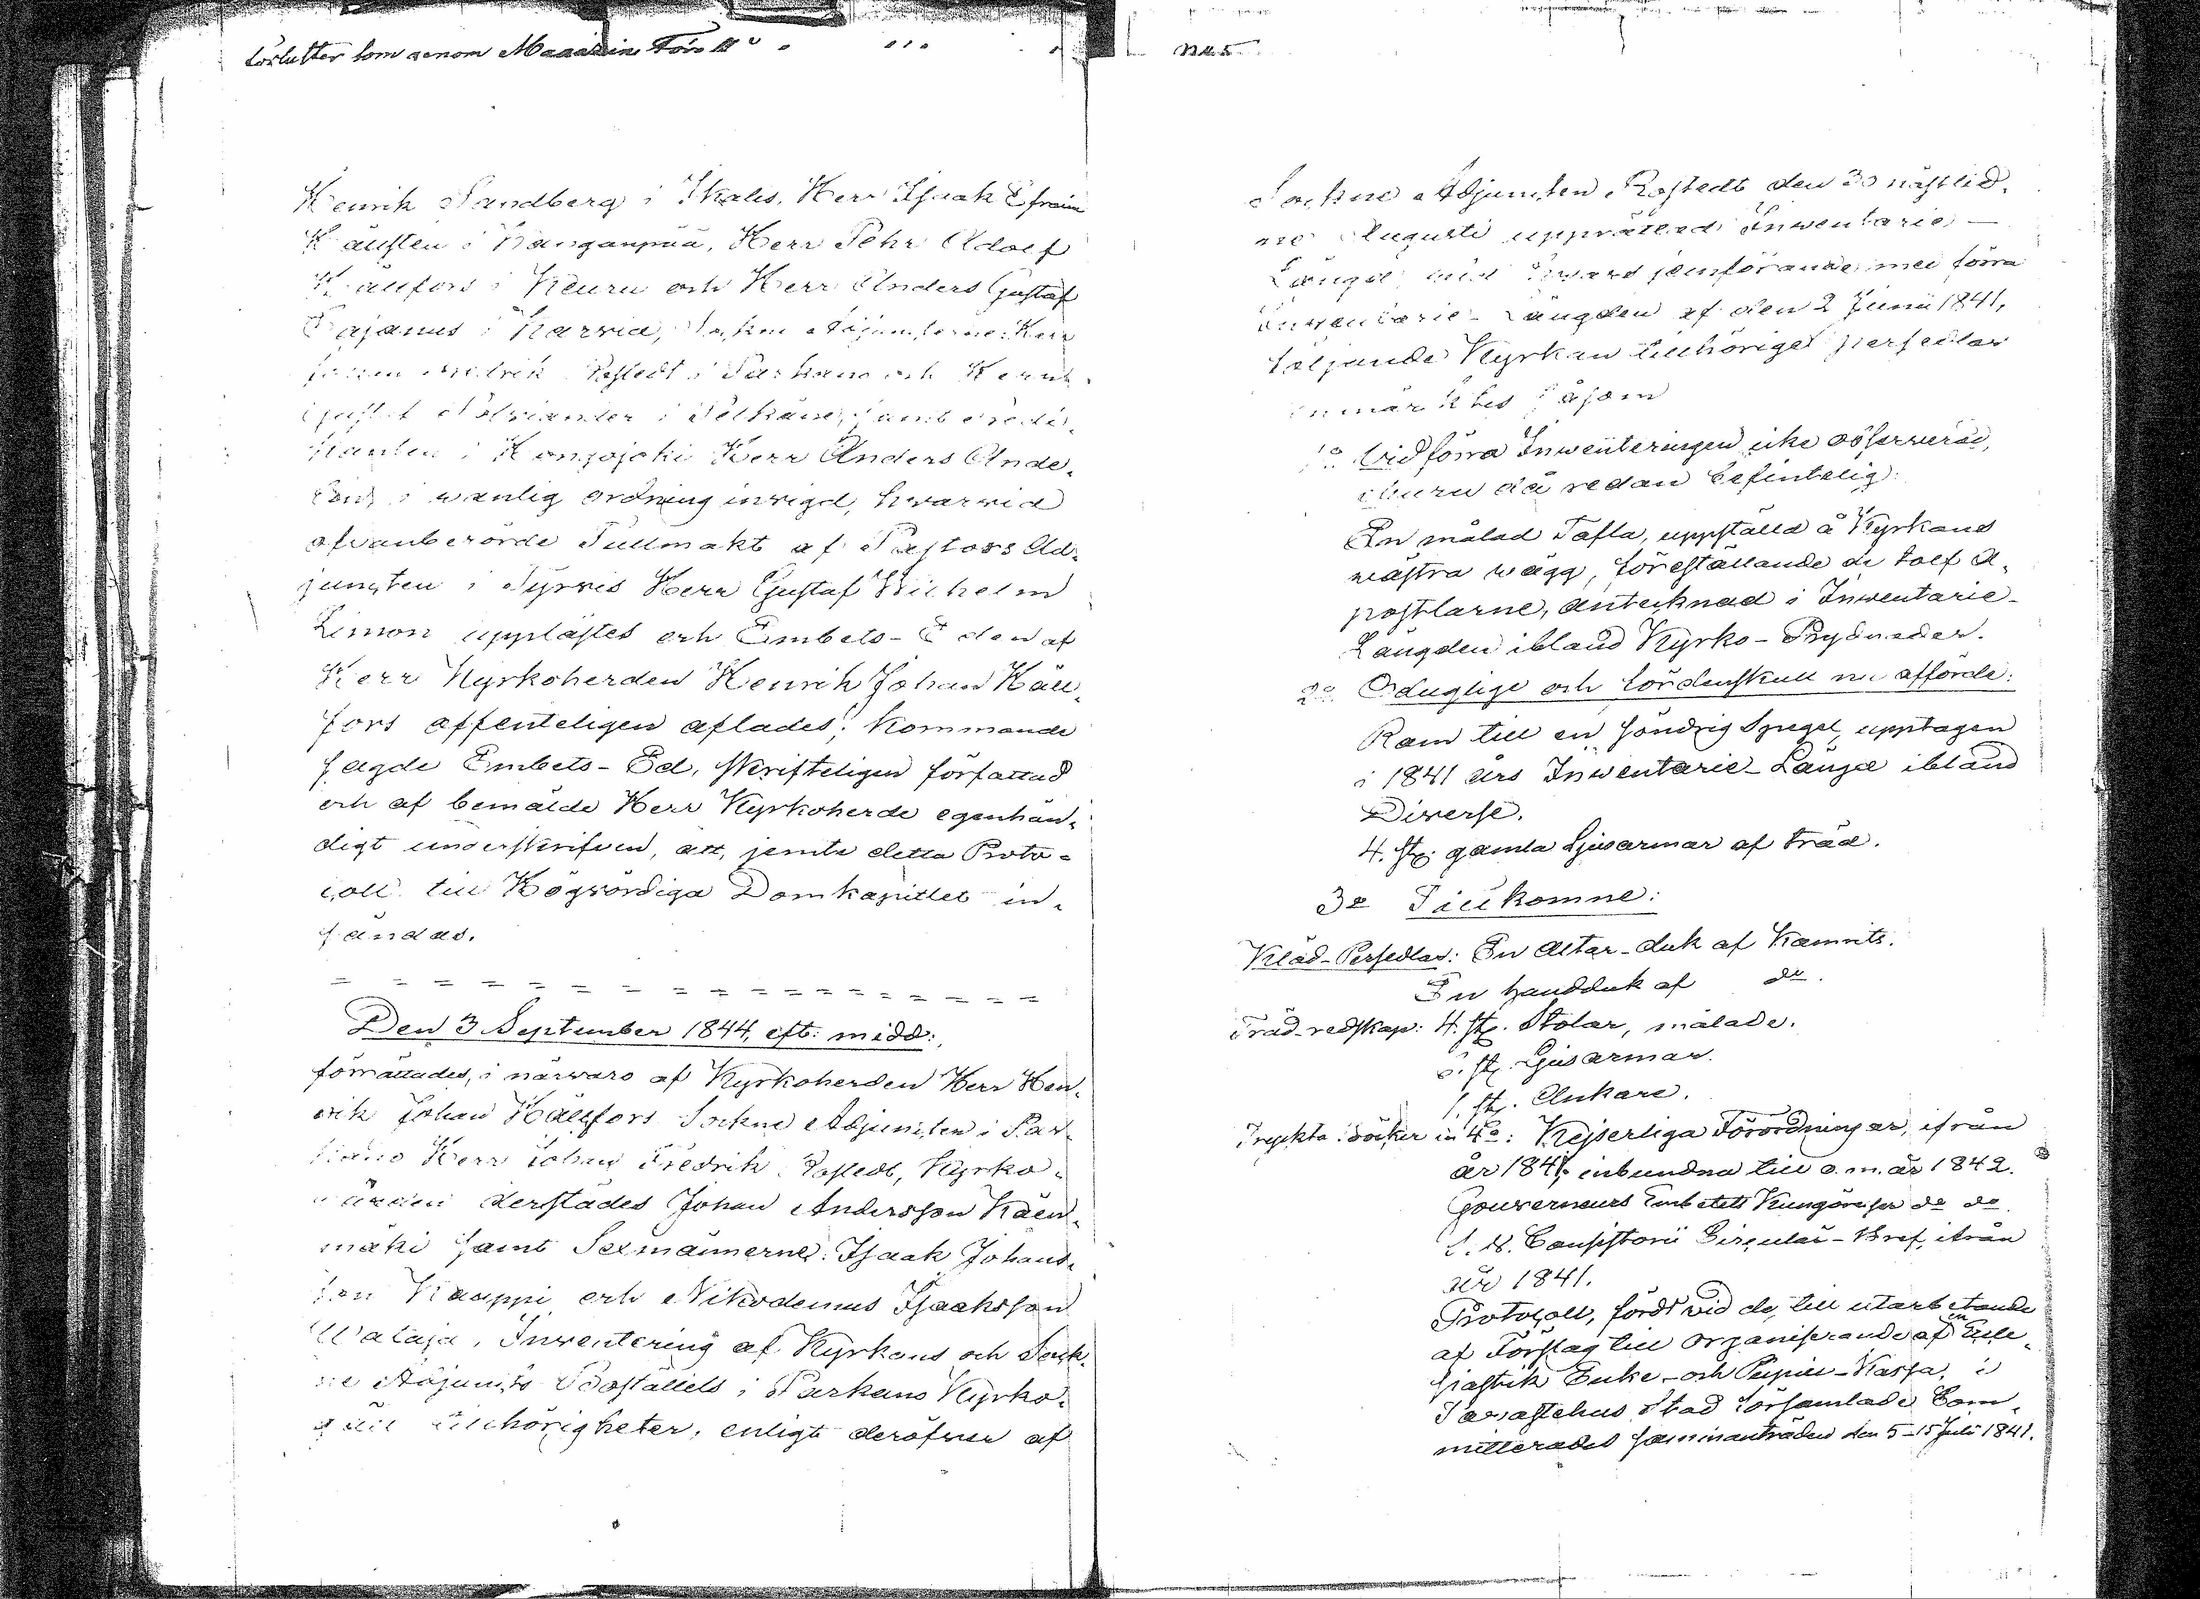 Henrik Sandberg i Ikalis, Herr Isaak Efraim
Källsten i Kangaspää, Herr Pehr Adolf
Källfors i Keuru och Herr Anders Gustaf
Cajanus i Karvia, Sockne Adjuncterne: Herr
Johan Fredrik Rostedt i Parkano och Henrik
Gustaf i Pelkäne, samt Predi-
kanten i Honkojoki Herr Anders Ande-
lin, i wanlig ordning invigd, hvarvid
ofvanberörde Fullmakt af Pastors Ad-
juncten i Tyrvis Herr Gustaf Wilhelm
Limon upplästes och Embets-Eden af
Herr Kyrkoherden Henrik Johan Häll-
fors offenteligen aflades; kommande
sagde Embets-Ed, skrifteligen författad
och af bemälde Herr Kyrkoherde egenhän-
digt underskrifven, att, jemte detta Proto-
coll till Högvördiga Domkapitlet in-
sändas.
Den 3 September 1844, eft: midd:,
förrättades, i närvaro af Kyrkoherden Herr Hen-
rik Johan Hällfors Sockne Adjuncten i Par-
kano Herr Johan Fredrik Rostedt, Kyrko-
värden derstädes Johan Andersson Käen-
mäki samt Sexmännerne: Isaak Johans-
son Kaappi och Nikodemus Isaaksson
Wataja, Inventering af Kyrkans och Sock-
ne Adjuncts Boställets i Parkano Kyrko-
gäll tillhörigheter, enligt deröfver af
Sockne Adjuncten Rostedt den 30 nästlid-
ne Augusti upprättad Inventarie-
Längd, vid hvars jemförande med förra
Inventarie-Längden af den 2 Junii 1841,
följande Kyrkan tillhörige persedlar
anmärktes såsom
1o Vid förra Inventeringen icke observerad,
ehuru då redan befintelig:
En målad Tafla, uppställd å Kyrkans
westra wägg, föreställande de tolf A-
postlarne, antecknad i Inventarie-
Längden ibland Kyrko-Prydnader.
2o Oduglige och fördenskull nu afförde:
Ram till en söndrig Spegel, upptagen
i 1841 års Inventarie-Längd ibland
Diverse.
4. st. gamla Ljusarmar af träd.
3o Tillkomne:
Kläd-Persedlar: En Altar-duk af Kamrits.
En handduk af do.
Träd-redskap: 4. st. Stolar, målade.
6. st. Ljusarmar.
1. st. Ankare.
Tryckta böcker in 4o: Kejserliga Förordningar, ifrån
år 1841, inbundna till o. m. år 1842.
Gouverneurs Embetets Kungörelser do do
E. O. Consistorii Circulär-Bref, ifrån
år 1841.
Protocoll, fördt vid de, till utarbetande
af Förslag till organiserande af en Eccle-
siastik Enke- och Pupill-Kassa, i
Tavastehus Stad församlade Com-
mitterades sammanträden den 5-15 Juli 1841.